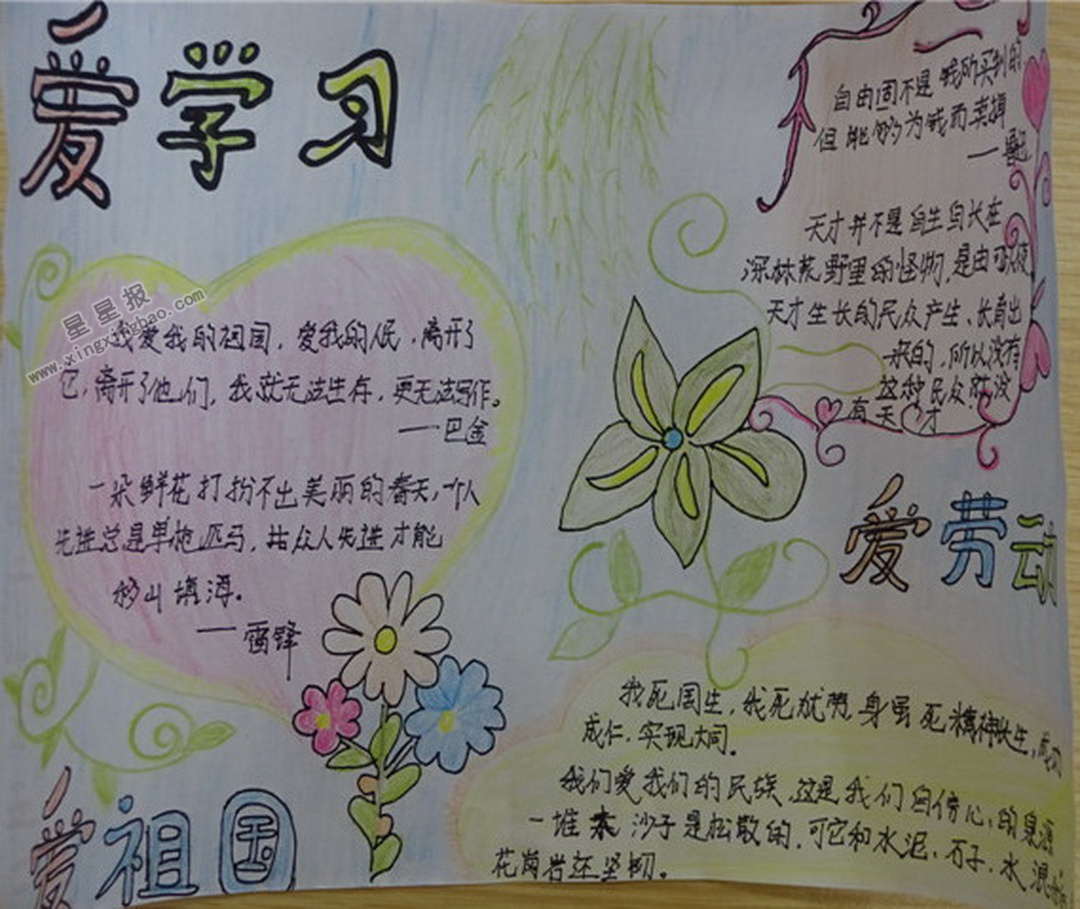 爱学习
星星报
www.xingxingbao.com
我爱我的祖国，爱我的人民，离开了
它，离开了他们，我就无法生存，更无法写作。
——巴金
一朵鲜花打扮不出美丽的春天，一个人
先进总是单枪匹马，众人先进才能
移山填海。
——雷锋
爱祖国
自由固不是钱所买到的
但能够为钱而卖掉
天才并不是自生自长在
深林荒野里的怪物，是由可以使
天才生长的民众产生、长育出
来的，所以没有
这种民众就没
有天才
爱劳动
我死国生，我死犹荣，身虽死精神长生，成功
成仁，实现大同。
我们爱我们的民族，这是我们自信心的泉源
一堆 沙子是松散的，可它和水泥、石子、水混
花岗岩还坚韧。